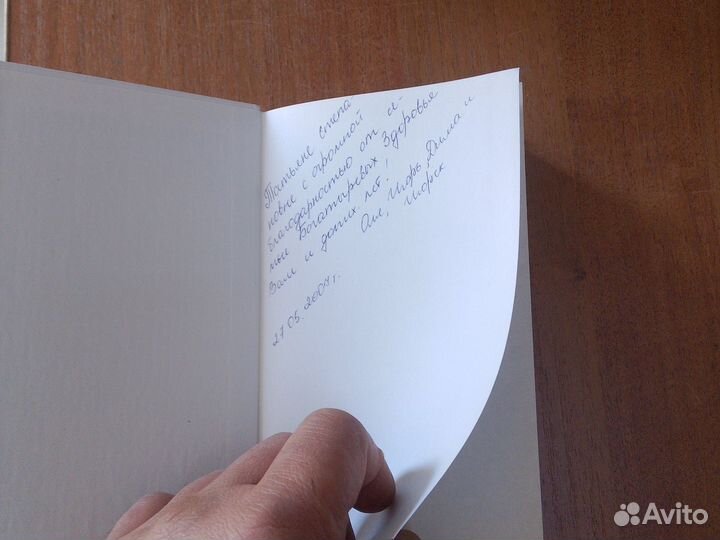 Татьяне Степа-
новне с огромной
благодарностью от се-
мьи Богатыревых. Здоровья
Вам и долгих лет!
Оля, Игорь, Дима и
27.05.2007г.
Avito